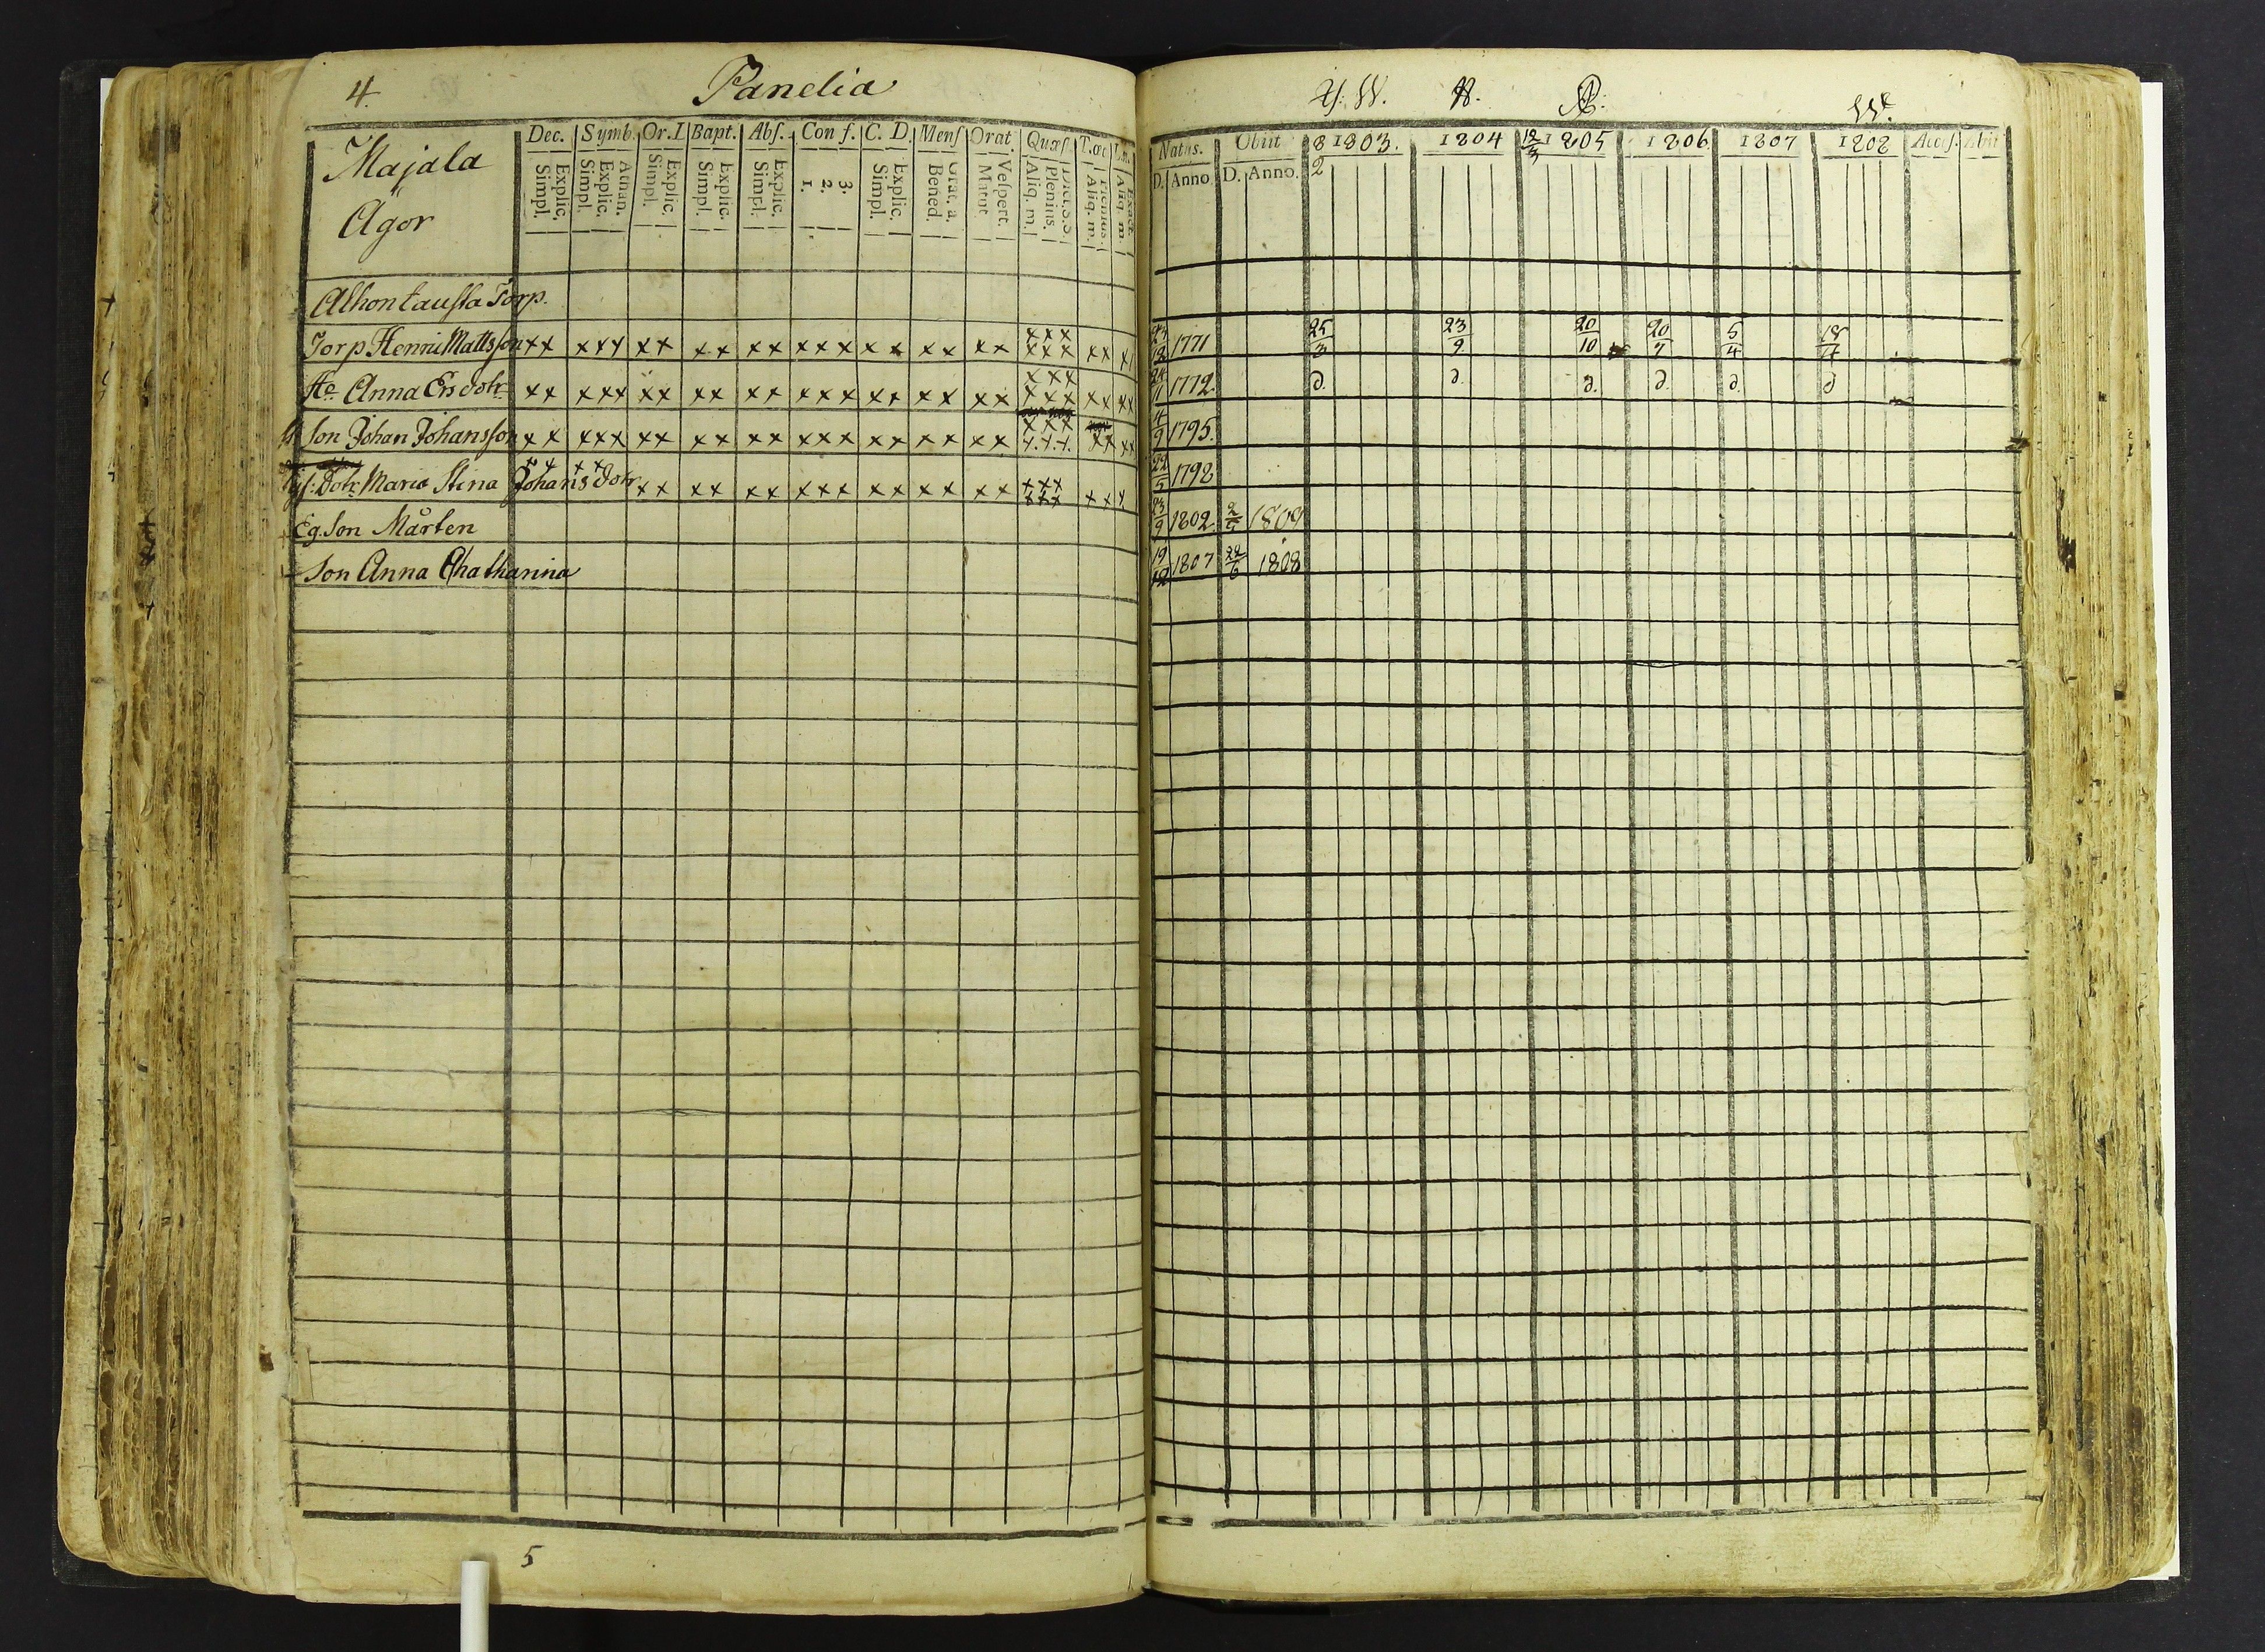 4. Panelia
Dec. Symb. Or. I. Bapt. Abſ. Con f. C. D. Menſ Orat. Quæſ. T. œc
Majala
Ägor
Explic. Simpl. Athan. Explic. Simpl. Explic. Simpl. Explic. Simpl. Explic. Simpl. 3. 2. 1. Explic. Simpl. Grat. a. Bened. Veſpert. Matut Dict. S. S. Plenius. Aliq. m. Plenius. Aliq. m. Exact. Aliq. m.
Alhontausta Torp.
Torp. Henric Mattsson xx xxx xx xx xx xxx xx xx xx xxx xxx xx x
Ha Anna Ersdotr xx xxx xx xx xx xxx xx xx xx xxx xxx xx xx
Son Johan Johansson xx xxx xx xx xx xxx xx xx xx xxx x.x.x. xx xx
Dotr Maria Stina Johansdotr xx xx xx xxx xx xx xx xxx xxx xx x
Eg. Son Mårten
Son Anna Chatharina
5
Y. W. W. R. W.
Natus. Obiit 8/2 1803. 1804 12/3 1805 1806 1807 1808 Acceſ. Abiit
D. Anno D. Anno.
1771 25/3 23/9. 20/10 20/7 5/4 18/4
24/11 1772. d. d. d. d. d. d
4/9 1795.
22/5 1798
23/9 1802. 1809
19/12 1807 22/6 1808